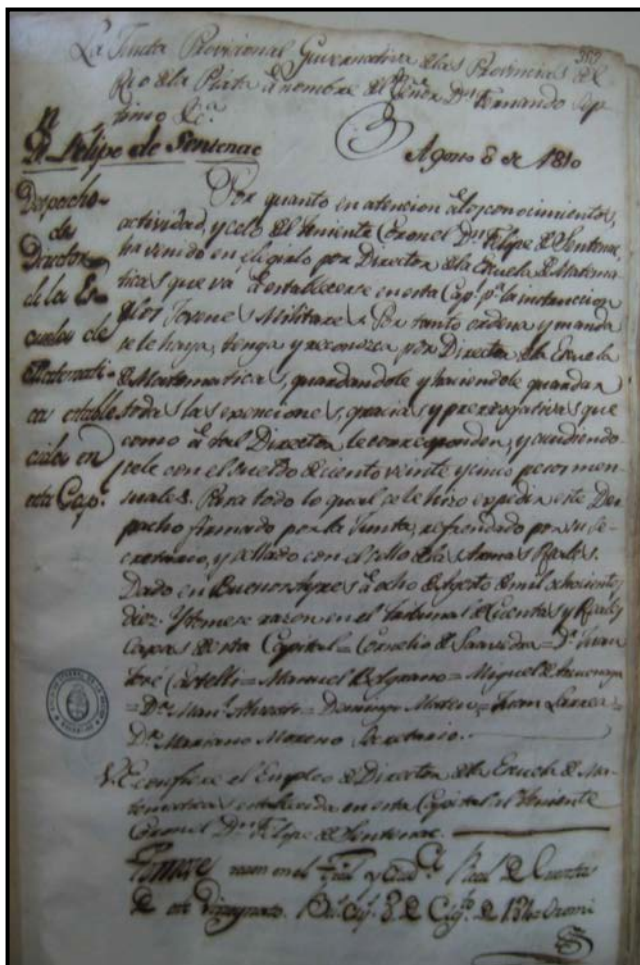 La Junta Provicional Guvernativa de las Provincias del
Rio de la Plata á nombre del Señor Dn. Fernando Sep
timo &a.
Agosto 8 de 1810
D. Felipe de Sentenac
Despacho
de
Director
de la Es
cuela de
Matemati-
ca estable
cida en
esta Cap.l
Por quanto en atencion á los conocimientos,
actividad, y celo del Teniente Coronel Dn. Felipe de Sentenac,
ha venido en elegirlo por Director de la Escuela de Matema-
ticas que vá á establecerse en esta Cap.l p.a la instruccion
de los Jovenes Militares. Por tanto ordena y manda
se le haya, tenga y reconozca por Director de la Escuela
de Matematicas, guardandole y haciendole guardar
todas las exenciones, gracias, y prerrogativas que
como á tal Director le corresponden, y acudiendo-
sele con el sueldo de ciento veinte y cinco pesos men-
suales. Para todo lo qual se le hizo expedir este Des-
pacho firmado por la Junta, refrendado por su Se-
cretario, y sellado con el sello de las Armas Reales.
Dado en Buenos Ayres á ocho de Agosto de mil ochocientos
diez. Y tomese razon en el Tribunal de Cuentas y Reales
Caxas de esta Capital = Cornelio de Saavedra = Dr. Juan
José Castelli = Manuel Belgrano = Miguel de Azcuenaga
= Dor. Manl. Alberti = Domingo Mateu = Juan Larrea =
Dor. Mariano Moreno Secretario.
V.E. confiere el Empleo de Director de la Escuela de Ma-
tematicas establecida en esta Capital al Teniente
Coronel Dn. Felipe de Sentenac.
Tomose razon en el Tral. y Real de Cuentas
de este Virreynato. 8 de de 1810